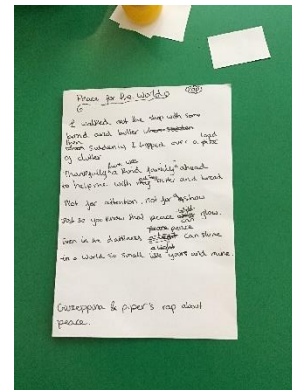 Peace for the World
I walked out the shop with some
bread and butter
then suddenly I tripped over a load
of clutter
Thankfully there was a kind family ahead
to help me with my butter and bread
Not for attention, not for show
Just so you know that peace will grow.
Even in the darkness peace can shine
in a world so small like yours and mine.
Giuseppina & piper's rap about
peace.